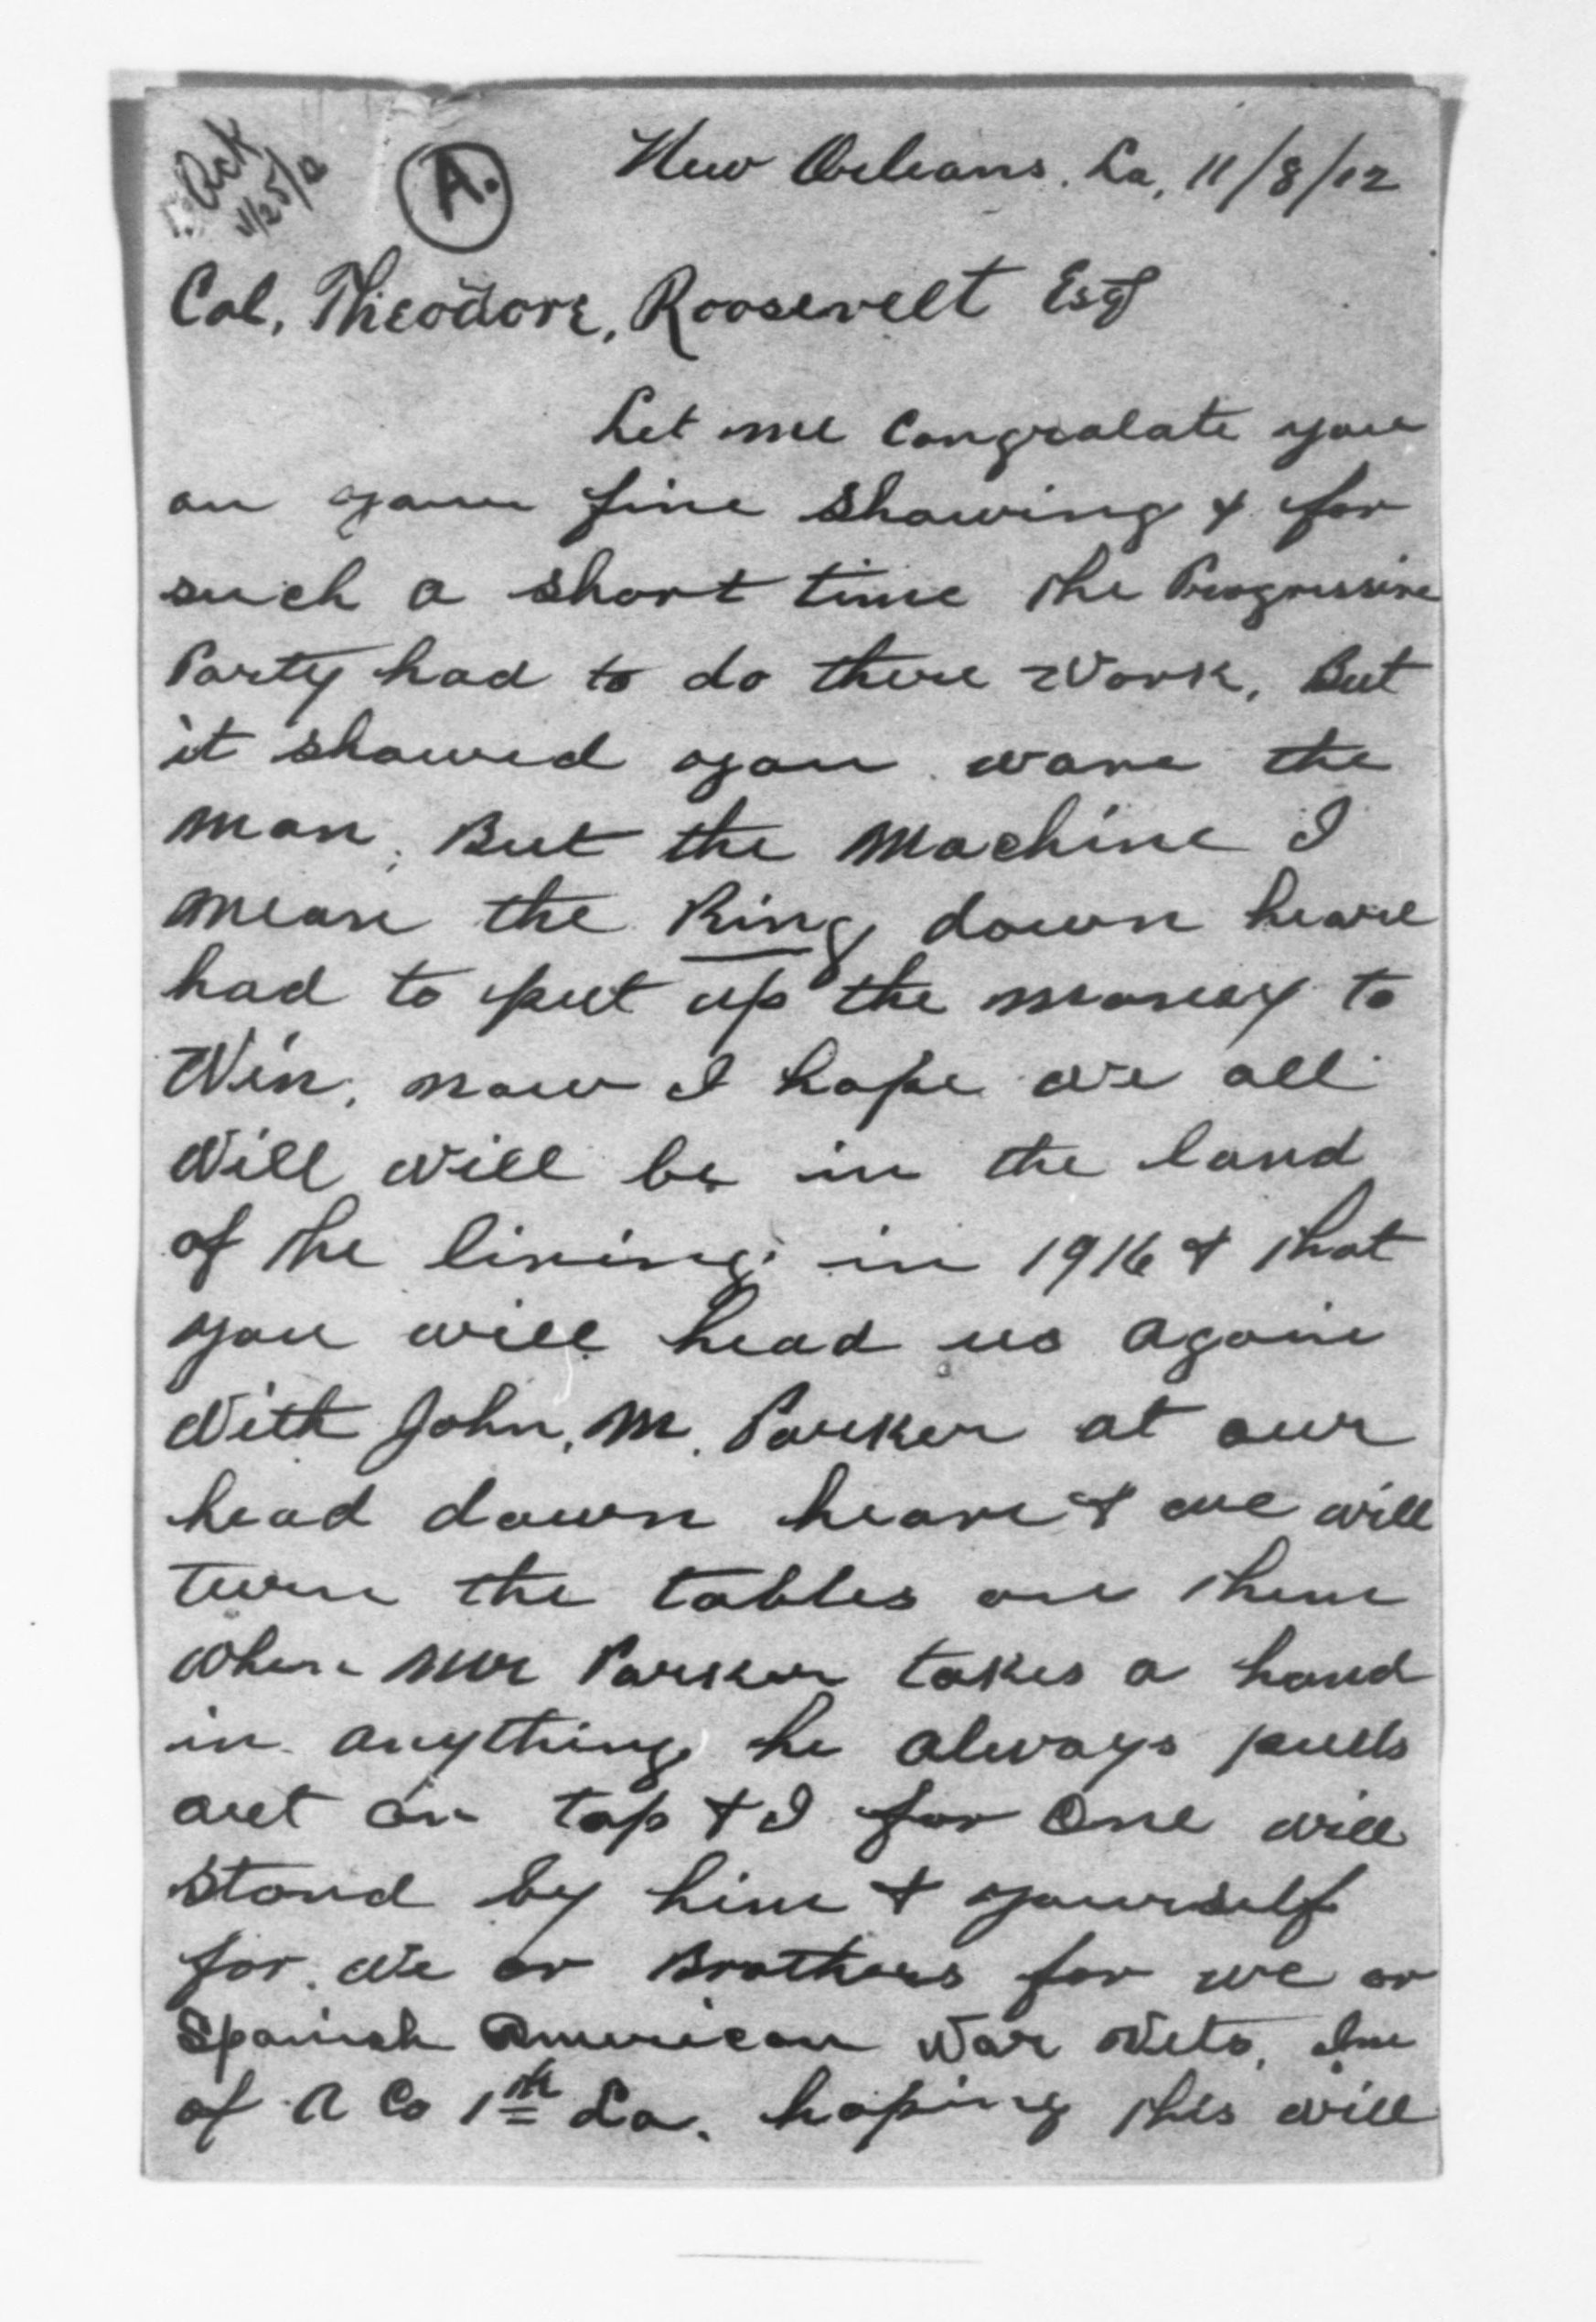 Ack
11/25/12
A.
New Orleans. La, 11/8/12
Col, Theodore, Roosevelt Esq
Let me Congralate you
on your fine showing & for
such a short time the Progressive
Party had to do there Work, But
it showed you ware the
man, But the Machine I
mean the Ring down heare
had to put up the money to
Win, now I hope we all
Will will be in the land
of the living in 1916 & that
you will head us again
With John, M. Parker at our
head down heare & we will
turn the tables on them
when Mr Parker takes a hand
in anything he always pulls
out on top & I for one will
stand by him & yourself
for we or Brothers for we or
Spanish American War Vets, Ime
of A Co 1st La. hoping this will